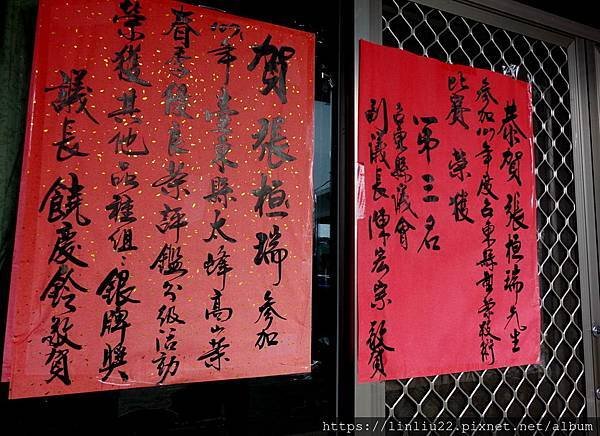 賀 張桓瑞 參加
107年臺東縣太峰高山茶
春季優良茶評鑑分級活動
榮獲其他品種組：銀牌獎
議長 饒慶鈴敬賀
恭賀張桓瑞先生
參加107年度台東縣製茶技術
比賽 榮獲
第三名
台東縣議會
副議長陳宏宗 敬賀
https://linliu22.pixnet.net/album